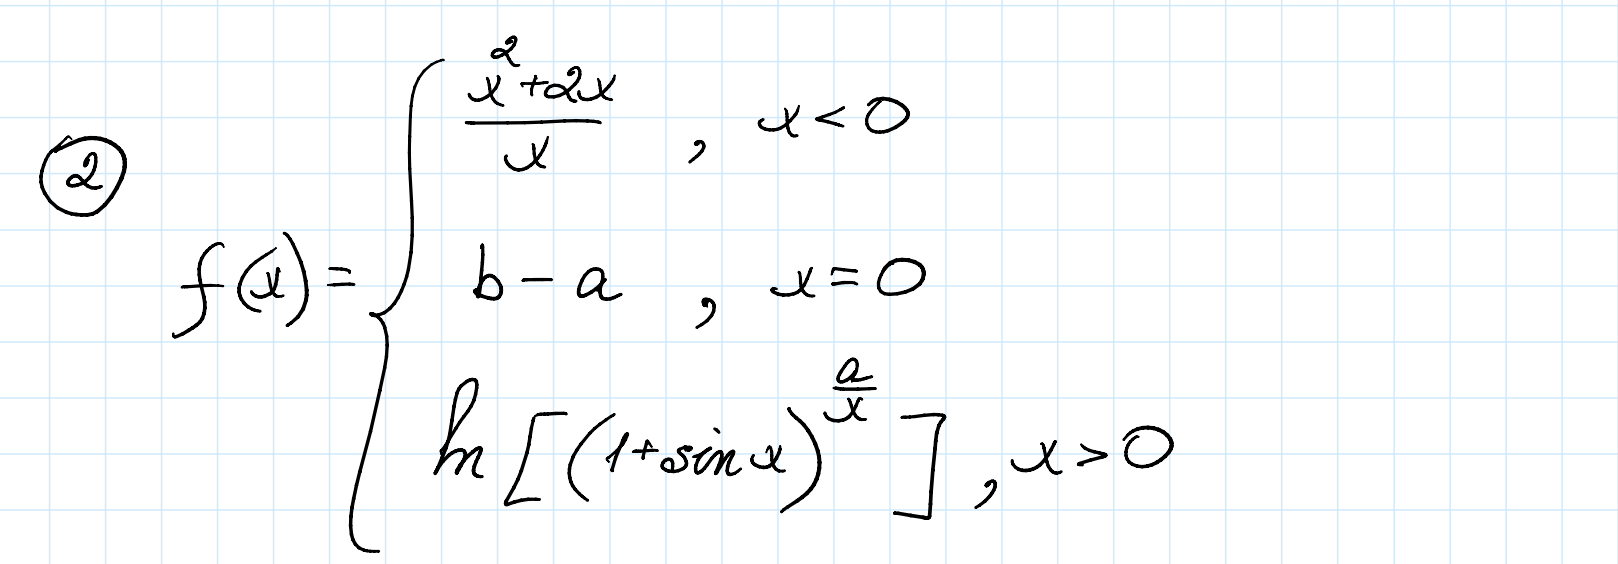 ②
f(x) = { (x²+2x)/x , x < 0
b - a , x = 0
ln [ (1+sin x)^(a/x) ] , x > 0